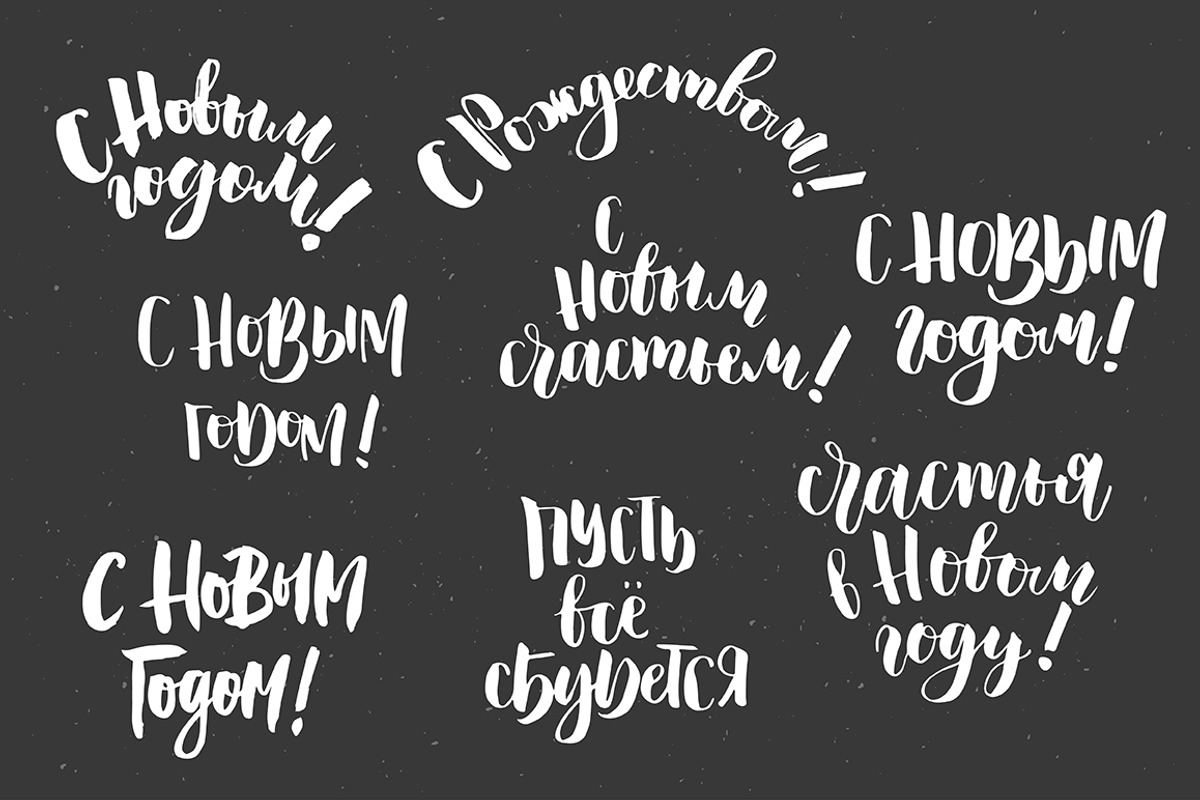 С Новым
годом!
С Рождеством!
С
Новым
счастьем!
С НОВЫМ
годом!
С НоВЫМ
годом!
С НоВЫМ
Годом!
ПУСТЬ
всё
сбудется
счастья
в Новом
году!